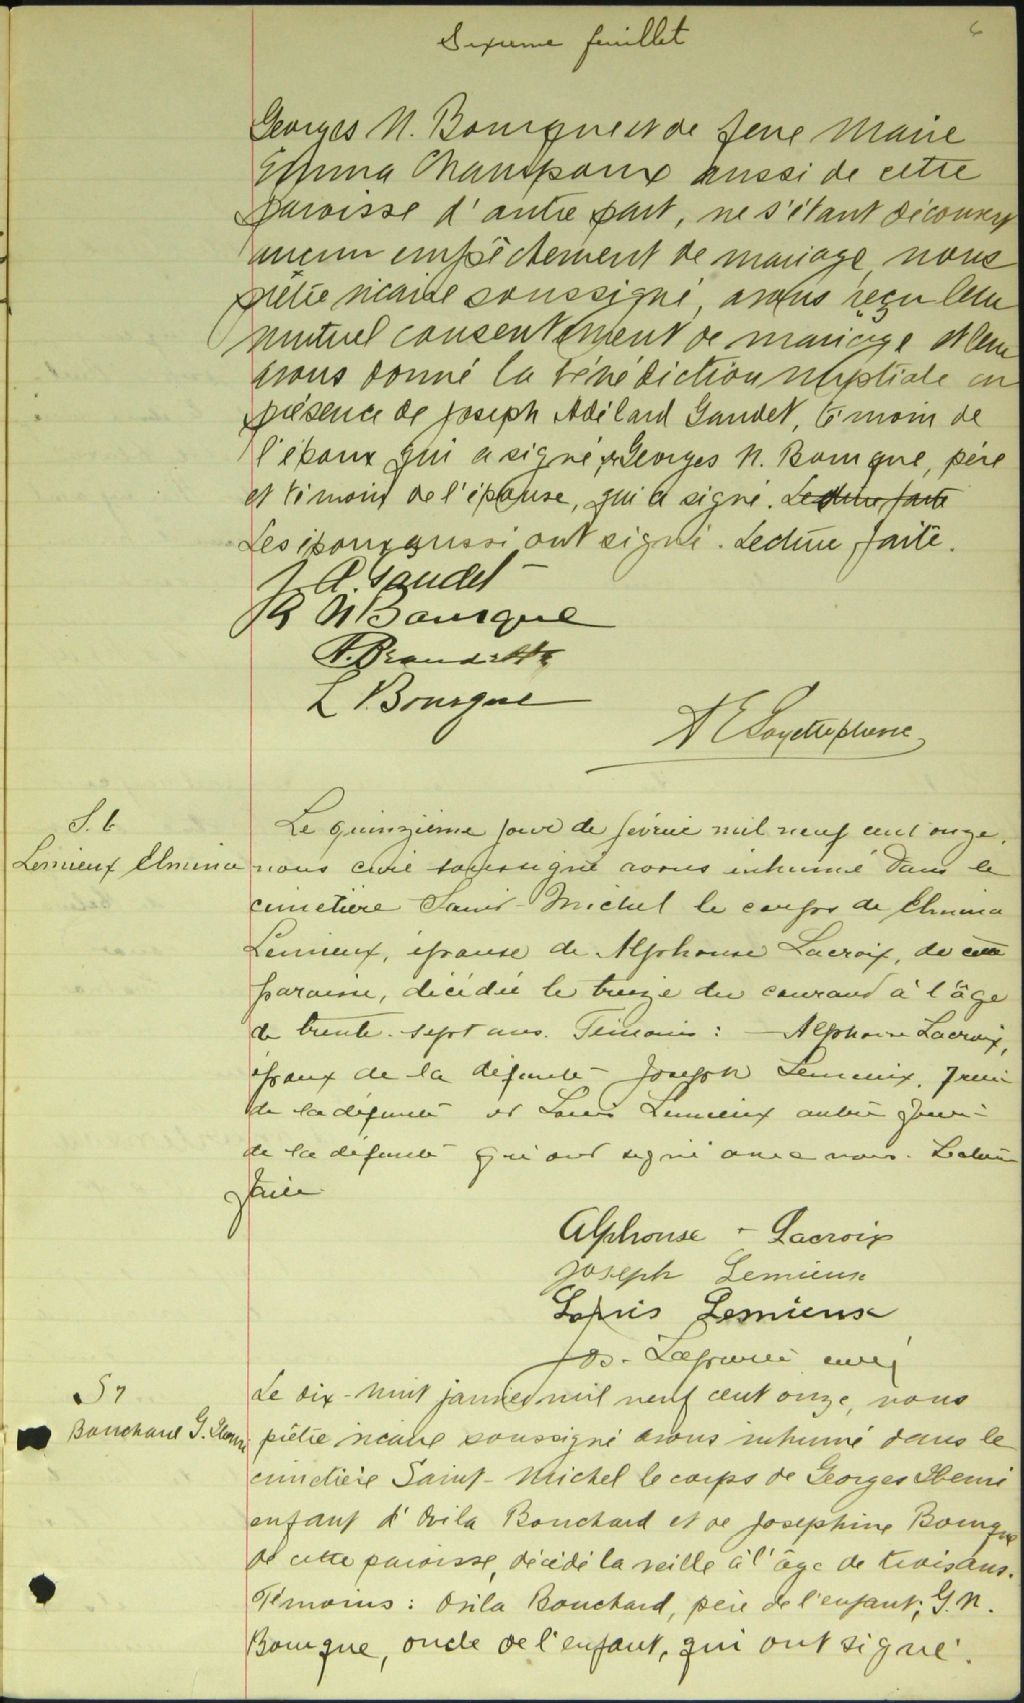 6
Sixième feuillet
Georges N. Bourque et de feue Marie
Emma Champoux aussi de cette
paroisse d'autre part, ne s'étant découvert
aucun empêchement de mariage, nous
prêtre vicaire soussigné, avons reçu leur
mutuel consentement de mariage et leur
avons donné la bénédiction nuptiale en
présence de Joseph Adélard Gaudet, témoin de
l'époux qui a signé, Georges N. Bourque, père
et témoin de l'épouse, qui a signé. Lecture faite
Les époux aussi ont signé. Lecture faite.
J. A. Gaudet
G N Bourque
A. Beaudette
L Bourque
A E
S. 6
Lemieux Elmina
Le quinzième jour de février mil neuf cent onze,
nous curé soussigné avons inhumé dans le
cimetière Saint-Michel le corps de Elmina
Lemieux, épouse de Alphonse Lacroix, de cette
paroisse, décédée le treize du courant à l'âge
de trente-sept ans. Témoins: Alphonse Lacroix,
époux de la défunte Joseph Lemieux, frère
de la défunte et Louis Lemieux autre frère
de la défunte qui ont signé avec nous. Lecture
faite
Alphonse Lacroix
Joseph Lemieux
Louis Lemieux
Jos. curé
S 7
Bouchard G. Henri
Le dix-huit janvier mil neuf cent onze, nous
prêtre vicaire soussigné avons inhumé dans le
cimetière Saint-Michel le corps de Georges Henri
enfant d'Ovila Bouchard et de Joséphine Bourque
de cette paroisse, décédé la veille à l'âge de trois ans.
Témoins: Ovila Bouchard, père de l'enfant; G. N.
Bourque, oncle de l'enfant, qui ont signé.